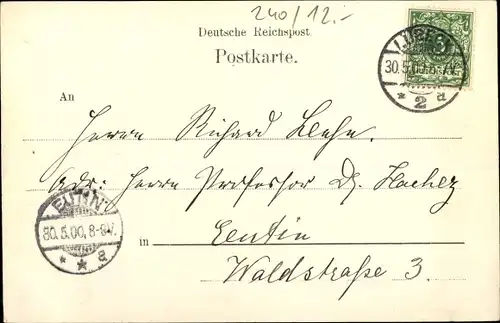 240/12.-
Deutsche Reichspost
Postkarte.
LÜBECK
30.5.00.
* 2 a
An
Herrn Richard
Adr: Herrn Professor Dr.
EUTIN
30.5.00, 8-9V.
* * a
in Eutin
Waldstraße 3.